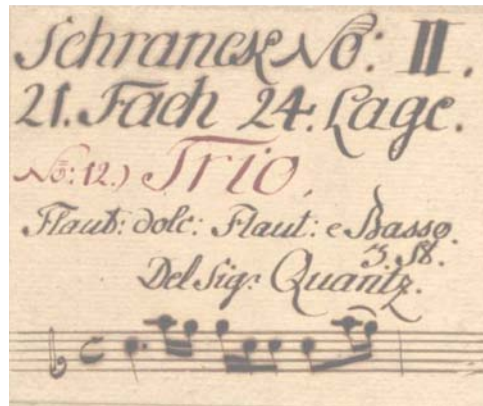 Schranck No: II.
21. Fach 24. Lage.
No: 12.) Trio,
Flaut: dolc: Flaut: e Basso.
3 St.
Del Sig: Quantz.